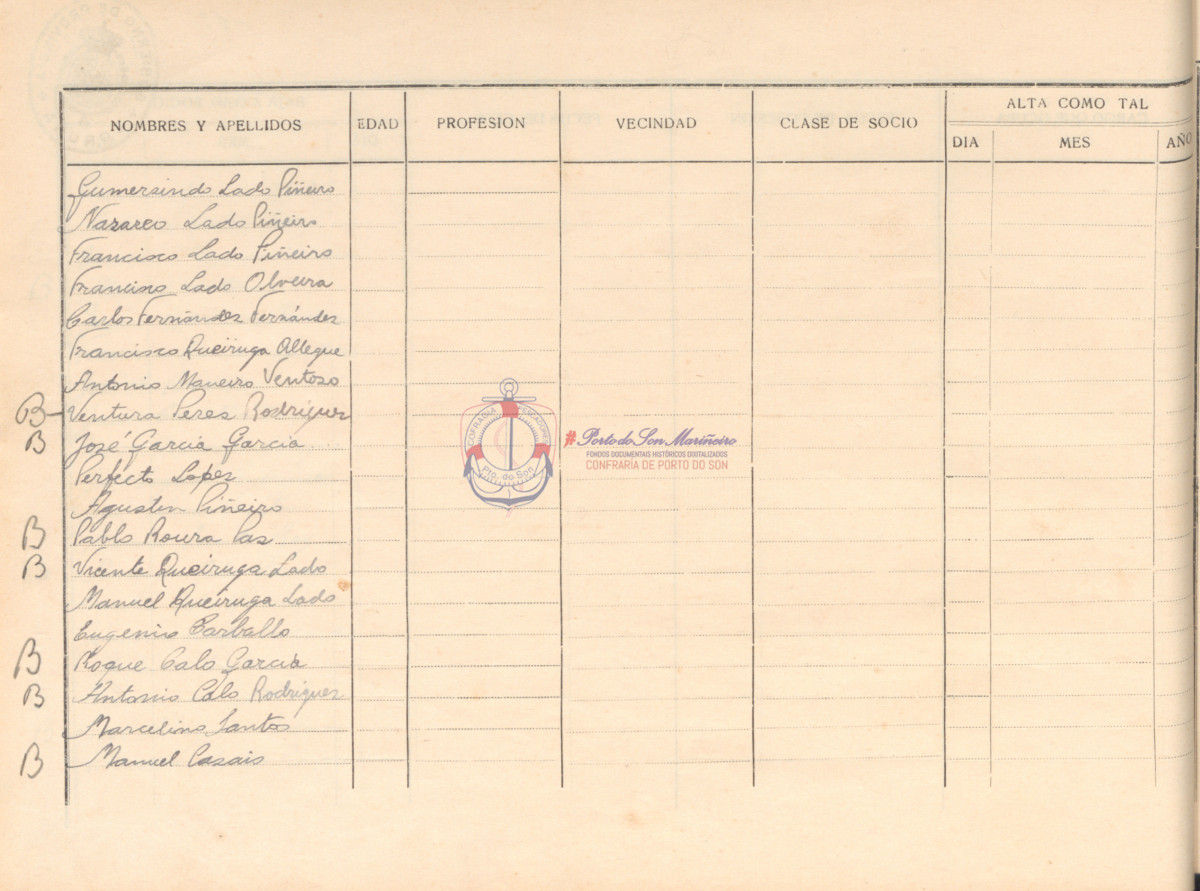 ALTA COMO TAL
NOMBRES Y APELLIDOS EDAD PROFESION VECINDAD CLASE DE SOCIO DIA MES AÑO
Gumersindo Lado Piñeiro
Nazareo Lado Piñeiro
Francisco Lado Piñeiro
Francisco Lado Olveira
Carlos Fernández Fernández
Francisco Queiruga
Antonio Maneiro Ventoso
B Ventura Perez Rodriguez
B José Garcia Garcia
Perfecto Lopez
Agustin Piñeiro
B Pablo Roura Paz
B Vicente Queiruga Lado
Manuel Queiruga Lado
Eugenio Carballo
B Roque Calo Garcia
B Antonio Calo Rodriguez
Marcelino Santos
B Manuel Casais
COFRADIA PESCADORES
Pto. do Son
#Porto do Son Mariñeiro
FONDOS DOCUMENTAIS HISTÓRICOS DIXITALIZADOS
CONFRARÍA DE PORTO DO SON